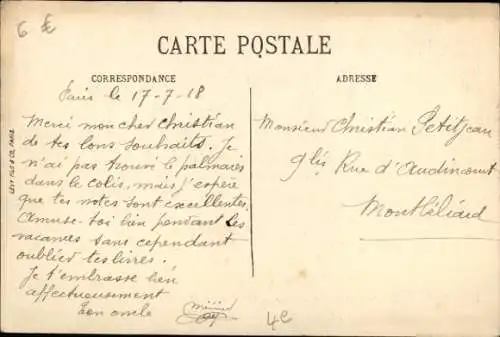 6 €
CARTE POSTALE
CORRESPONDANCE
ADRESSE
Paris le 17-7-18
Merci mon cher Christian
de tes bons souhaits. Je
n'ai pas trouvé le palmarès
dans le colis, mais j'espère
que tes notes sont excellentes.
Amuse-toi bien pendant les
vacances sans cependant
oublier tes livres.
Je t'embrasse bien
affectueusement
Ton oncle
Monsieur Christian Petitjean
9 bis Rue d'Audincourt
Montbéliard
LEVY FILS & CIE, PARIS
4€